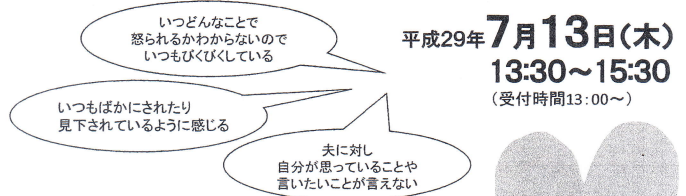 いつどんなことで
怒られるかわからないので
いつもびくびくしている
いつもばかにされたり
見下されているように感じる
夫に対し
自分が思っていることや
言いたいことが言えない
平成29年7月13日(木)
13:30~15:30
(受付時間13:00~)